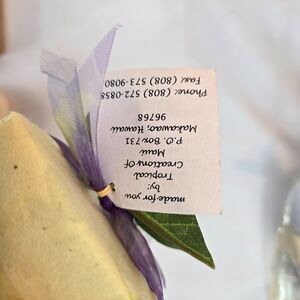 made for you
by:
Tropical
Creations Of
Maui
P.O. Box 731
Makawao, Hawaii
96768
Phone: (808) 572-0858
Fax: (808) 573-9080